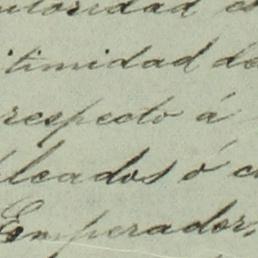 autoridad es
itimidad de
respecto á
pleados ó c
Emperador,